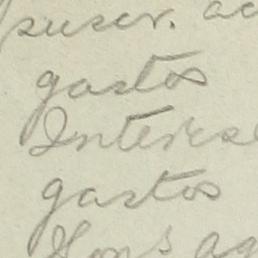 suscr. ac
gastos
Interese
gastos